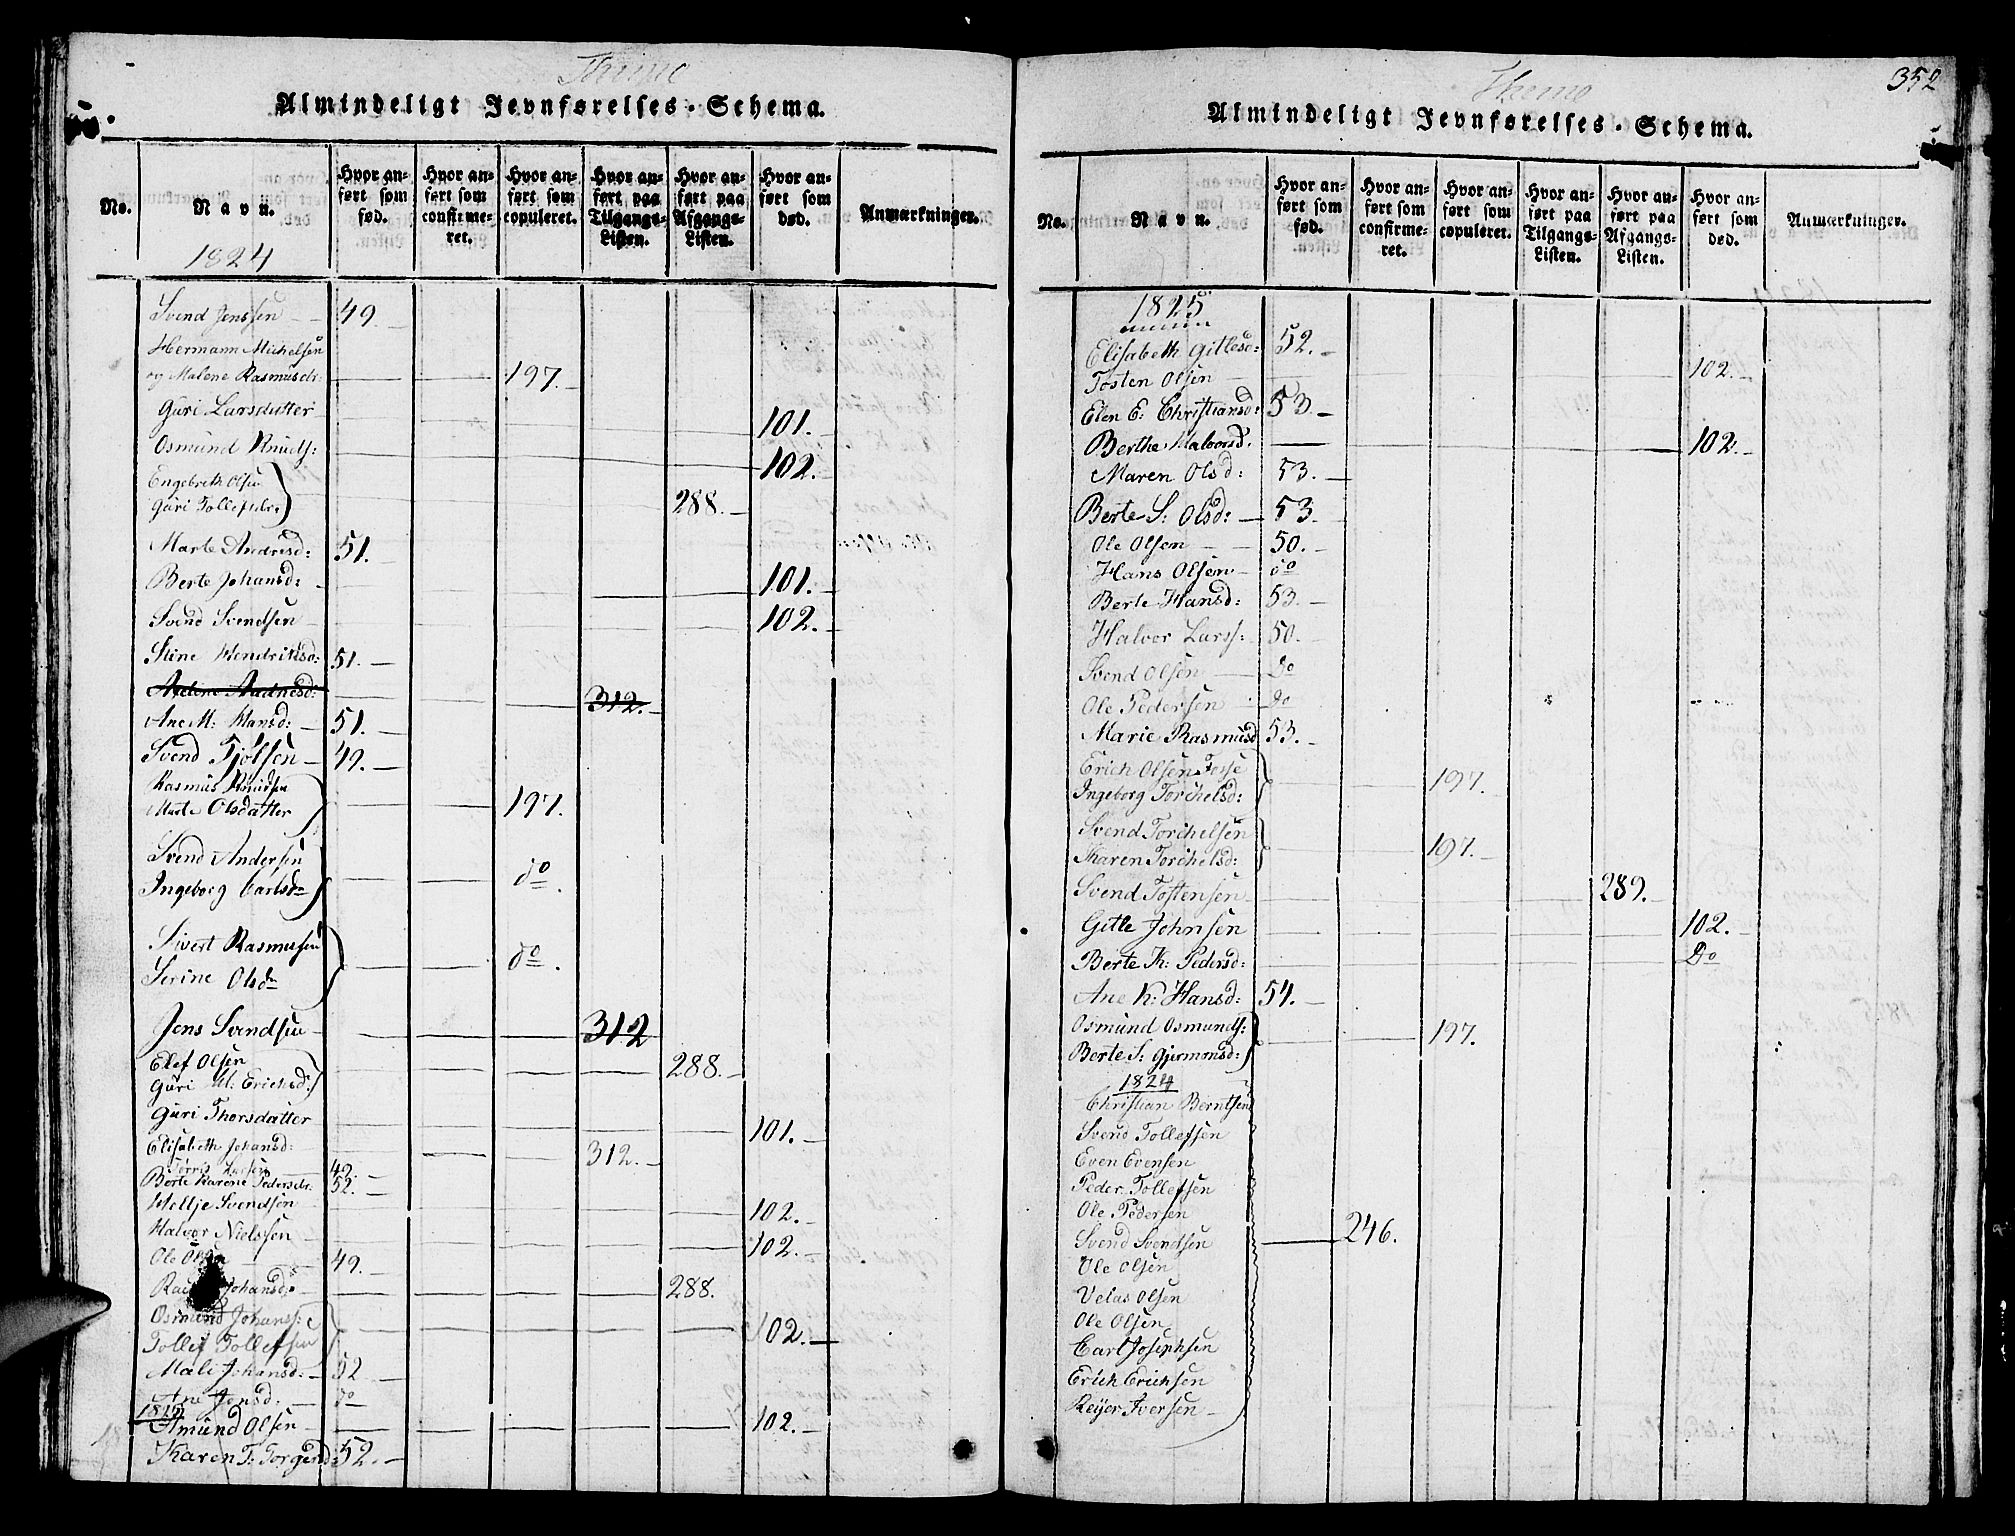 Thime
Almindeligt Jevnførelses-Schema.
No.
Navn.
Hvor anført som fød.
Hvor anført som confirmeret.
Hvor anført som copuleret.
Hvor anført paa Tilgangs-Listen.
Hvor anført paa Afgangs-Listen.
Hvor anført som død.
Anmærkninger.
1824
Svend Jenssen 49.
Hermann Michelsen
og Malene Rasmusdr: 197.
Guri Larsdatter 101.
Osmund Knuds: 102.
Engebreth Olsen
Guri Tollefsdr: 288.
Marte Andresd: 51.
Berte Johansd: 101.
Svend Svendsen 102.
Stine Hendriksd: 51.
Axeline Aadnesd: 312.
Ane M: Hansd: 51.
Svend Tjølsen 49.
Rasmus Knudsen
Marte Olsdatter 197.
Svend Andersen
Ingeborg Carlsdr do.
Sivert Rasmussen
Serine Olsdr do.
Jens Svendsen 312
Elef Olsen
Guri M: Erichsd: 288.
Guri Thorsdatter 101.
Elisabeth Johansd: 312.
Tørris Larsen 49.
Berte Karene Pedersdr. 52.
Heltje Svendsen 102.
Halvor Nielssen 102.
Ole 49.
Johansd: 288.
Osmund Johans:
Tollef Tollefsen 102.
Mali Johansd: 52
Ane Jonsd. do
1825
Amund Olsen 102.
Karen T: Torgersd: 52.
Thime
352
Almindeligt Jevnførelses-Schema.
No.
Navn.
Hvor anført som fød.
Hvor anført som confirmeret.
Hvor anført som copuleret.
Hvor anført paa Tilgangs-Listen.
Hvor anført paa Afgangs-Listen.
Hvor anført som død.
Anmærkninger.
1825
Elisabeth Gitlesd: 52.
Tosten Olsen 102.
Elen E: Christiansd: 53.
Berthe Halvorsd. 102.
Maren Olsd: 53.
Berte S: Olsd: 53.
Ole Olsen 50.
Hans Olsen do
Berte Hansd: 53.
Halvor Larss: 50.
Svend Olsen Do
Ole Pedersen Do
Marie Rasmusd 53.
Erich Olsen Fosse
Ingeborg Torchelsd: 197.
Svend Torchelsen
Karen Torchelsd: 197.
Svend Tostensen 289.
Gitle Johnsen 102.
Berte K: Pedersd: Do
Ane K: Hansd: 54.
Osmund Osmunds:
Berte S: Gjermonsd: 197.
1824
Christian Berntsen
Svend Tollefsen
Even Evensen
Peder Tollefsen
Ole Pedersen
Svend Svendsen 246.
Ole Olsen
Velas Olsen
Ole Olsen
Carl Josephsen
Erich Erichsen
Reijer Iversen